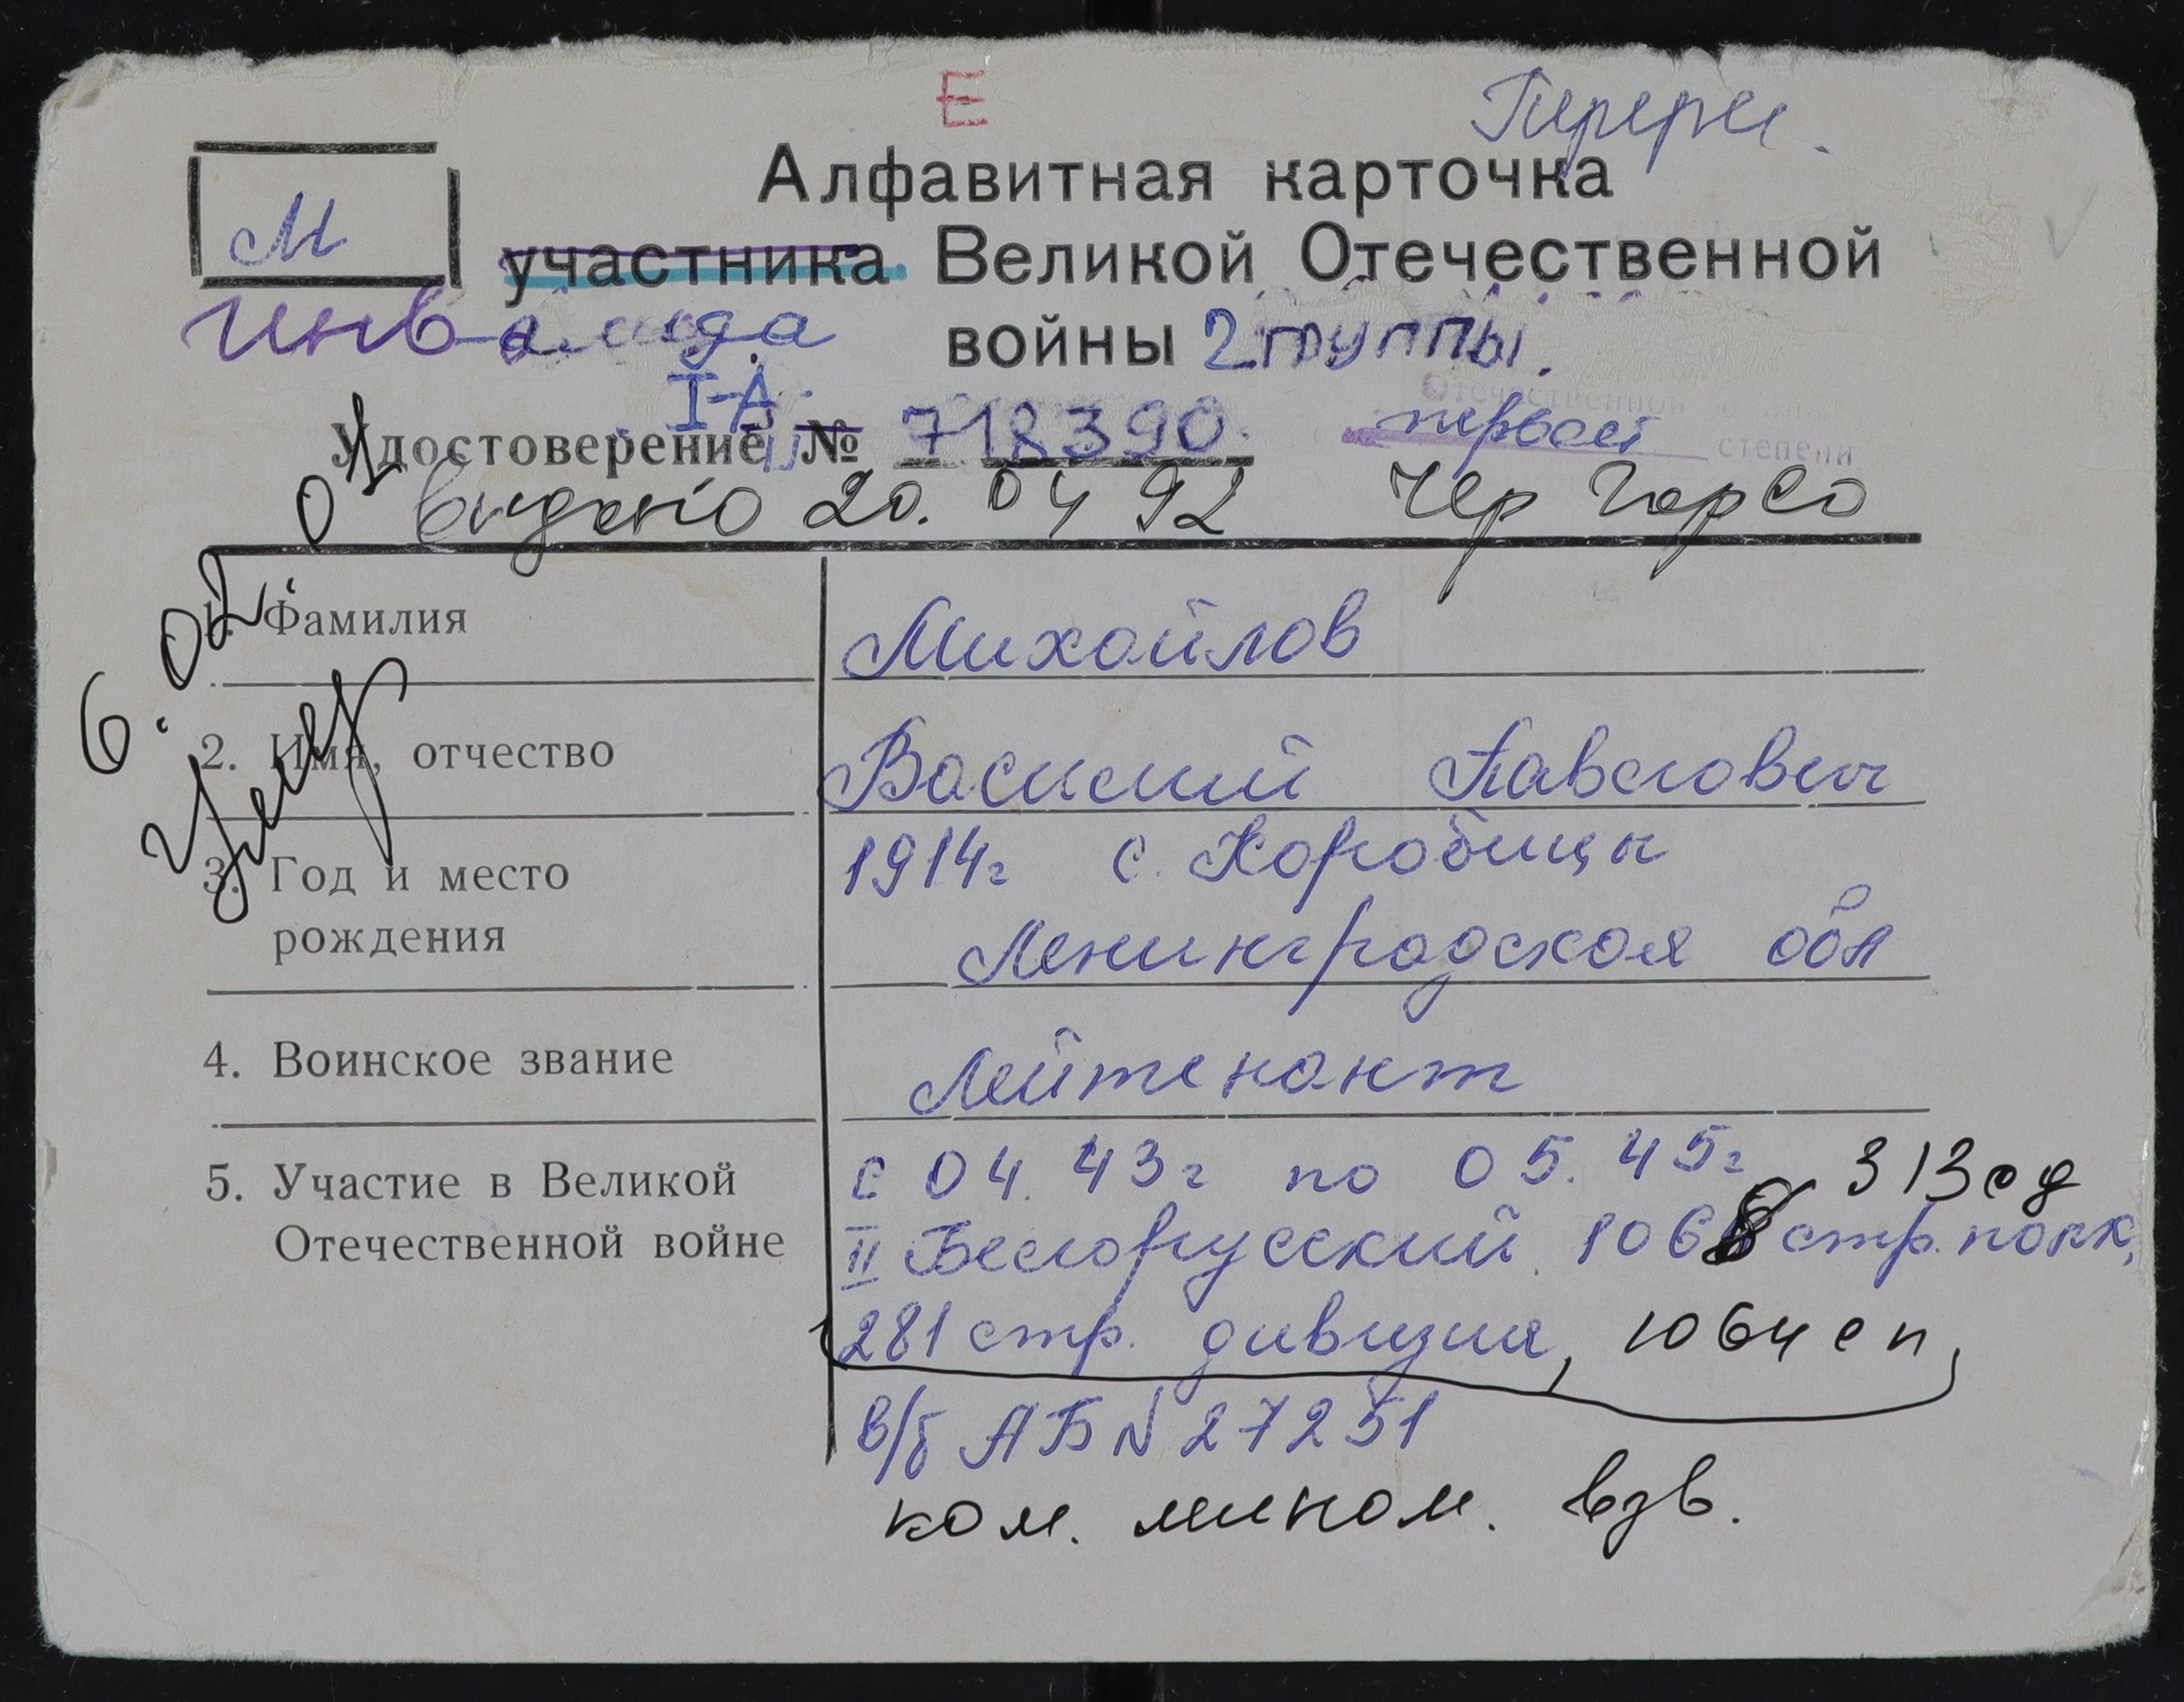 Е
Перерег.
Алфавитная карточка
М
участника Великой Отечественной
инвалида войны 2 группы.
I-А
Отечественной
Удостоверение № 718390. первой степени
выдано 20. 04 92 Чер Горсо
6. 02. 01
Умер
1. Фамилия Михайлов
2. Имя, отчество Василий Павлович
3. Год и место 1914г с. Коробицы
рождения Ленинградская обл
4. Воинское звание Лейтенант
5. Участие в Великой с 04. 43г по 05. 45г 313 сд
Отечественной войне II Белорусский. 1068 стр. полк,
281 стр. дивизия, 1064 сп,
в/б АБ N 27251
ком. мином. взв.